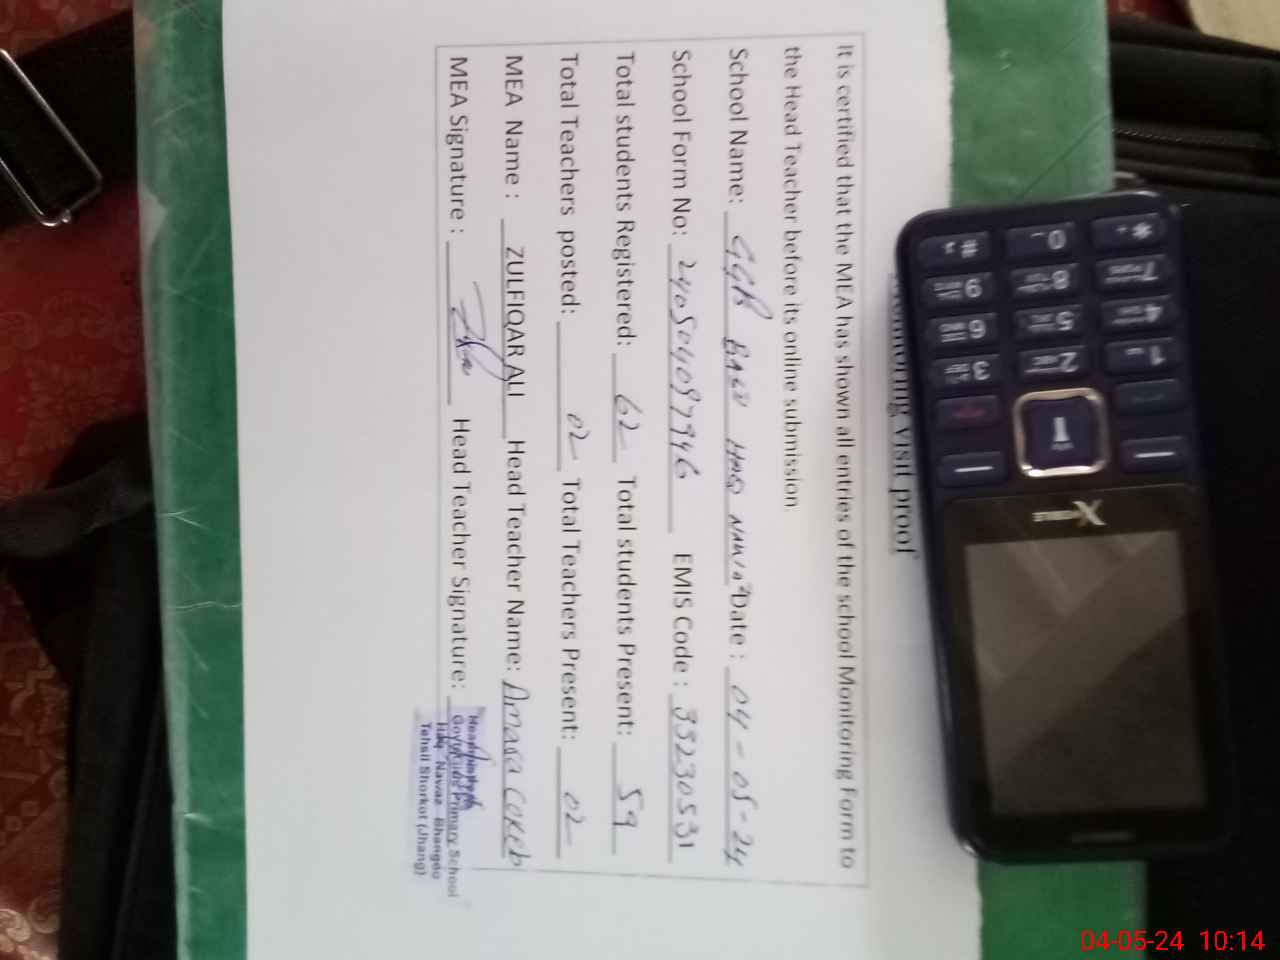 Monitoring visit proof
It is certified that the MEA has shown all entries of the school Monitoring Form to
the Head Teacher before its online submission.
School Name: Date: 04-05-24
School Form No: EMIS Code: 33230531
Total students Registered: 62 Total students Present: 59
Total Teachers posted: 02 Total Teachers Present: 02
MEA Name: ZULFIQAR ALI Head Teacher Name:
MEA Signature: Head Teacher Signature:
Govt Primary School
Haq Nawaz Bhangoo
Tehsil Shorkot (Jhang)
1 2 3
4 5 6
7 8 9
* 0 #
04-05-24 10:14